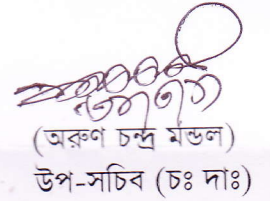 (অরুণ চন্দ্র মন্ডল)
উপ-সচিব (চঃ দাঃ)